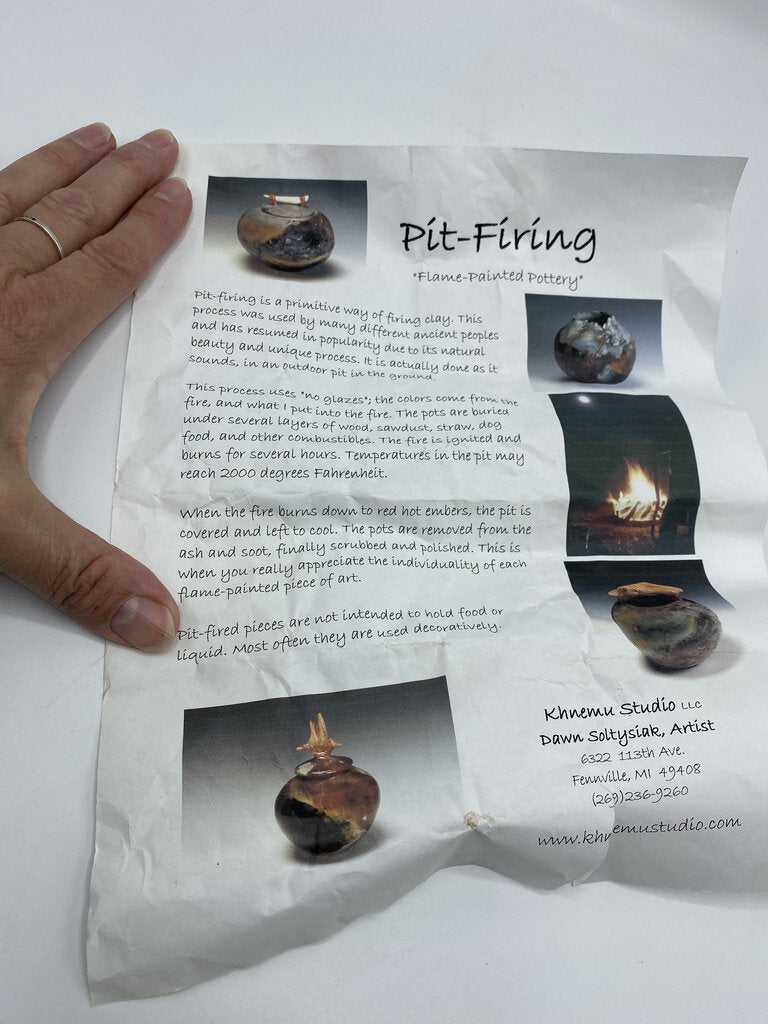 Pit-Firing
"Flame-Painted Pottery"
Pit-firing is a primitive way of firing clay. This
process was used by many different ancient peoples
and has resumed in popularity due to its natural
beauty and unique process. It is actually done as it
sounds, in an outdoor pit in the ground.
This process uses "no glazes"; the colors come from the
fire, and what I put into the fire. The pots are buried
under several layers of wood, sawdust, straw, dog
food, and other combustibles. The fire is ignited and
burns for several hours. Temperatures in the pit may
reach 2000 degrees Fahrenheit.
When the fire burns down to red hot embers, the pit is
covered and left to cool. The pots are removed from the
ash and soot, finally scrubbed and polished. This is
when you really appreciate the individuality of each
flame-painted piece of art.
Pit-fired pieces are not intended to hold food or
liquid. Most often they are used decoratively.
Khnemu Studio LLC
Dawn Soltysiak, Artist
6322 113th Ave.
Fennville, MI 49408
(269)236-9260
www.khnemustudio.com